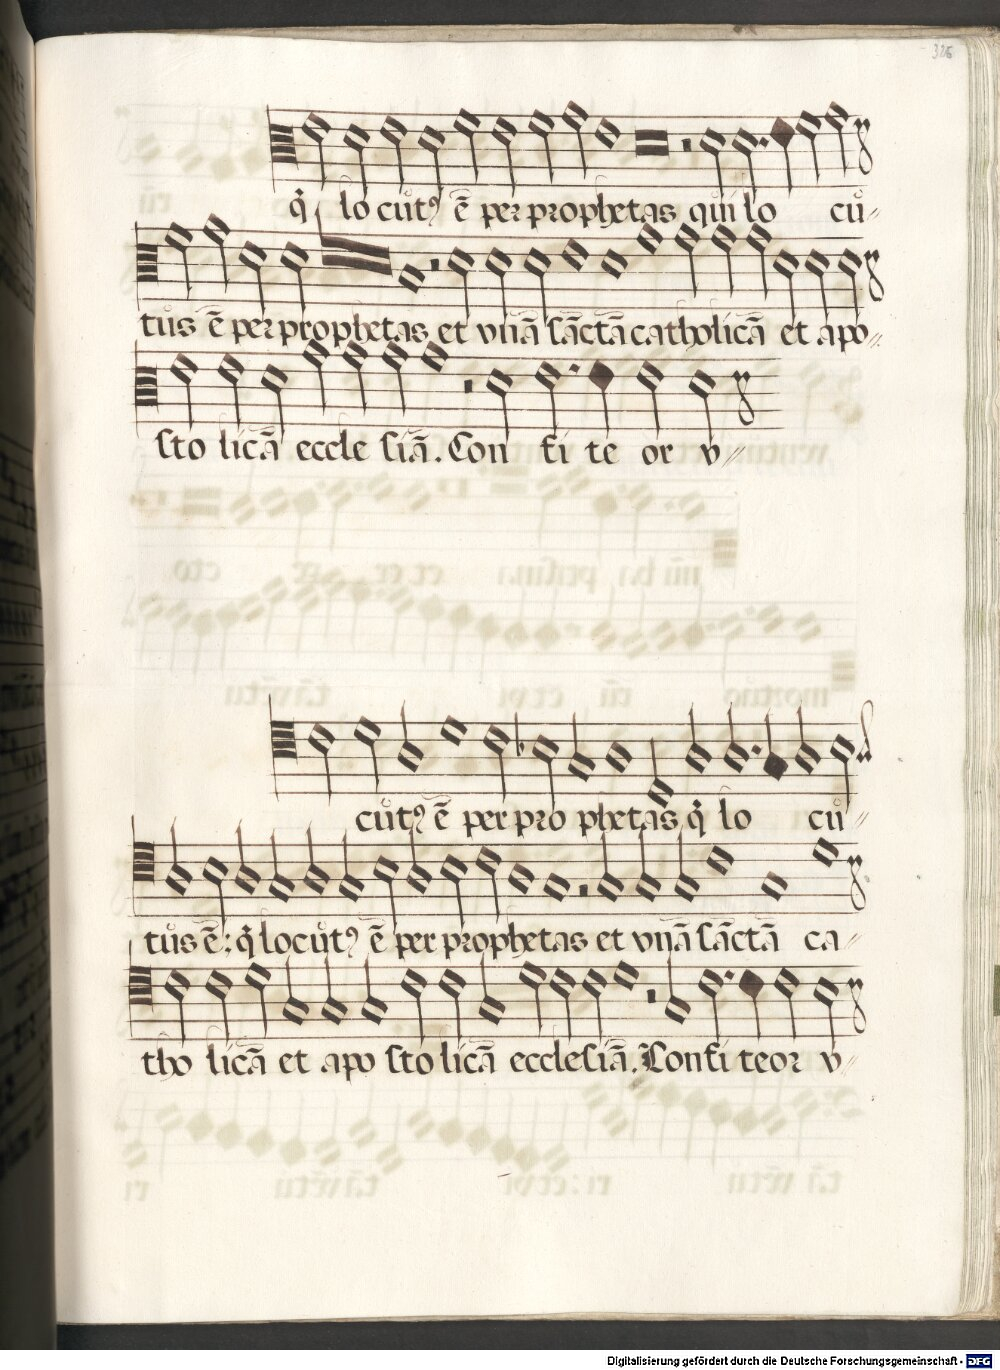 326
q̉ locutꝰ ē per prophetas qui lo cu〃
tus ē per prophetas et vnā sāctā catholicā et apo〃
sto licā eccle siā. Con fi te or v〃
cutꝰ ē per pro phetas q̉ lo cu〃
tus ē: q̉ locutꝰ ē per prophetas et vnā sāctā ca〃
tho licā et apo sto licā ecclesiā. Confi teor v〃
Digitalisierung gefördert durch die Deutsche Forschungsgemeinschaft - DFG